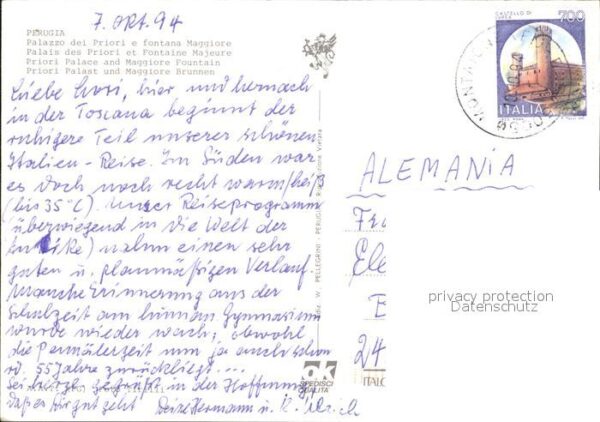 7. Okt. 94
PERUGIA
Palazzo dei Priori e fontana Maggiore
Palais des Priori et Fontaine Majeure
Priori Palace and Maggiore Fountain
Priori Palast und Maggiore Brunnen
Liebe, hier und hernach
in der Toscana beginnt der
ruhigere Teil unserer schönen
Italien-Reise. Im Süden war
es doch noch recht warm/heiß
(bis 35°C). Unser Reiseprogramm
(überwiegend in die Welt der
Antike) nahm einen sehr
guten u. planmäßigen Verlauf.
Manche Erinnerung aus der
Schulzeit am human. Gymnasium
wurde wieder wach, obwohl
die Pennälerzeit nun ja auch schon
rd. 55 Jahre zurückliegt...
Sei herzl. gegrüßt in der Hoffnung,
daß es Dir gut geht Deine Hermann u.
W. PELLEGRINI PERUGIA
ok
SPEDISCI
QUALITÀ
CASTELLO DI
IVREA
700
ITALIA
ALEMANIA
Fr
Ele
E
24
ITALC
privacy protection
Datenschutz